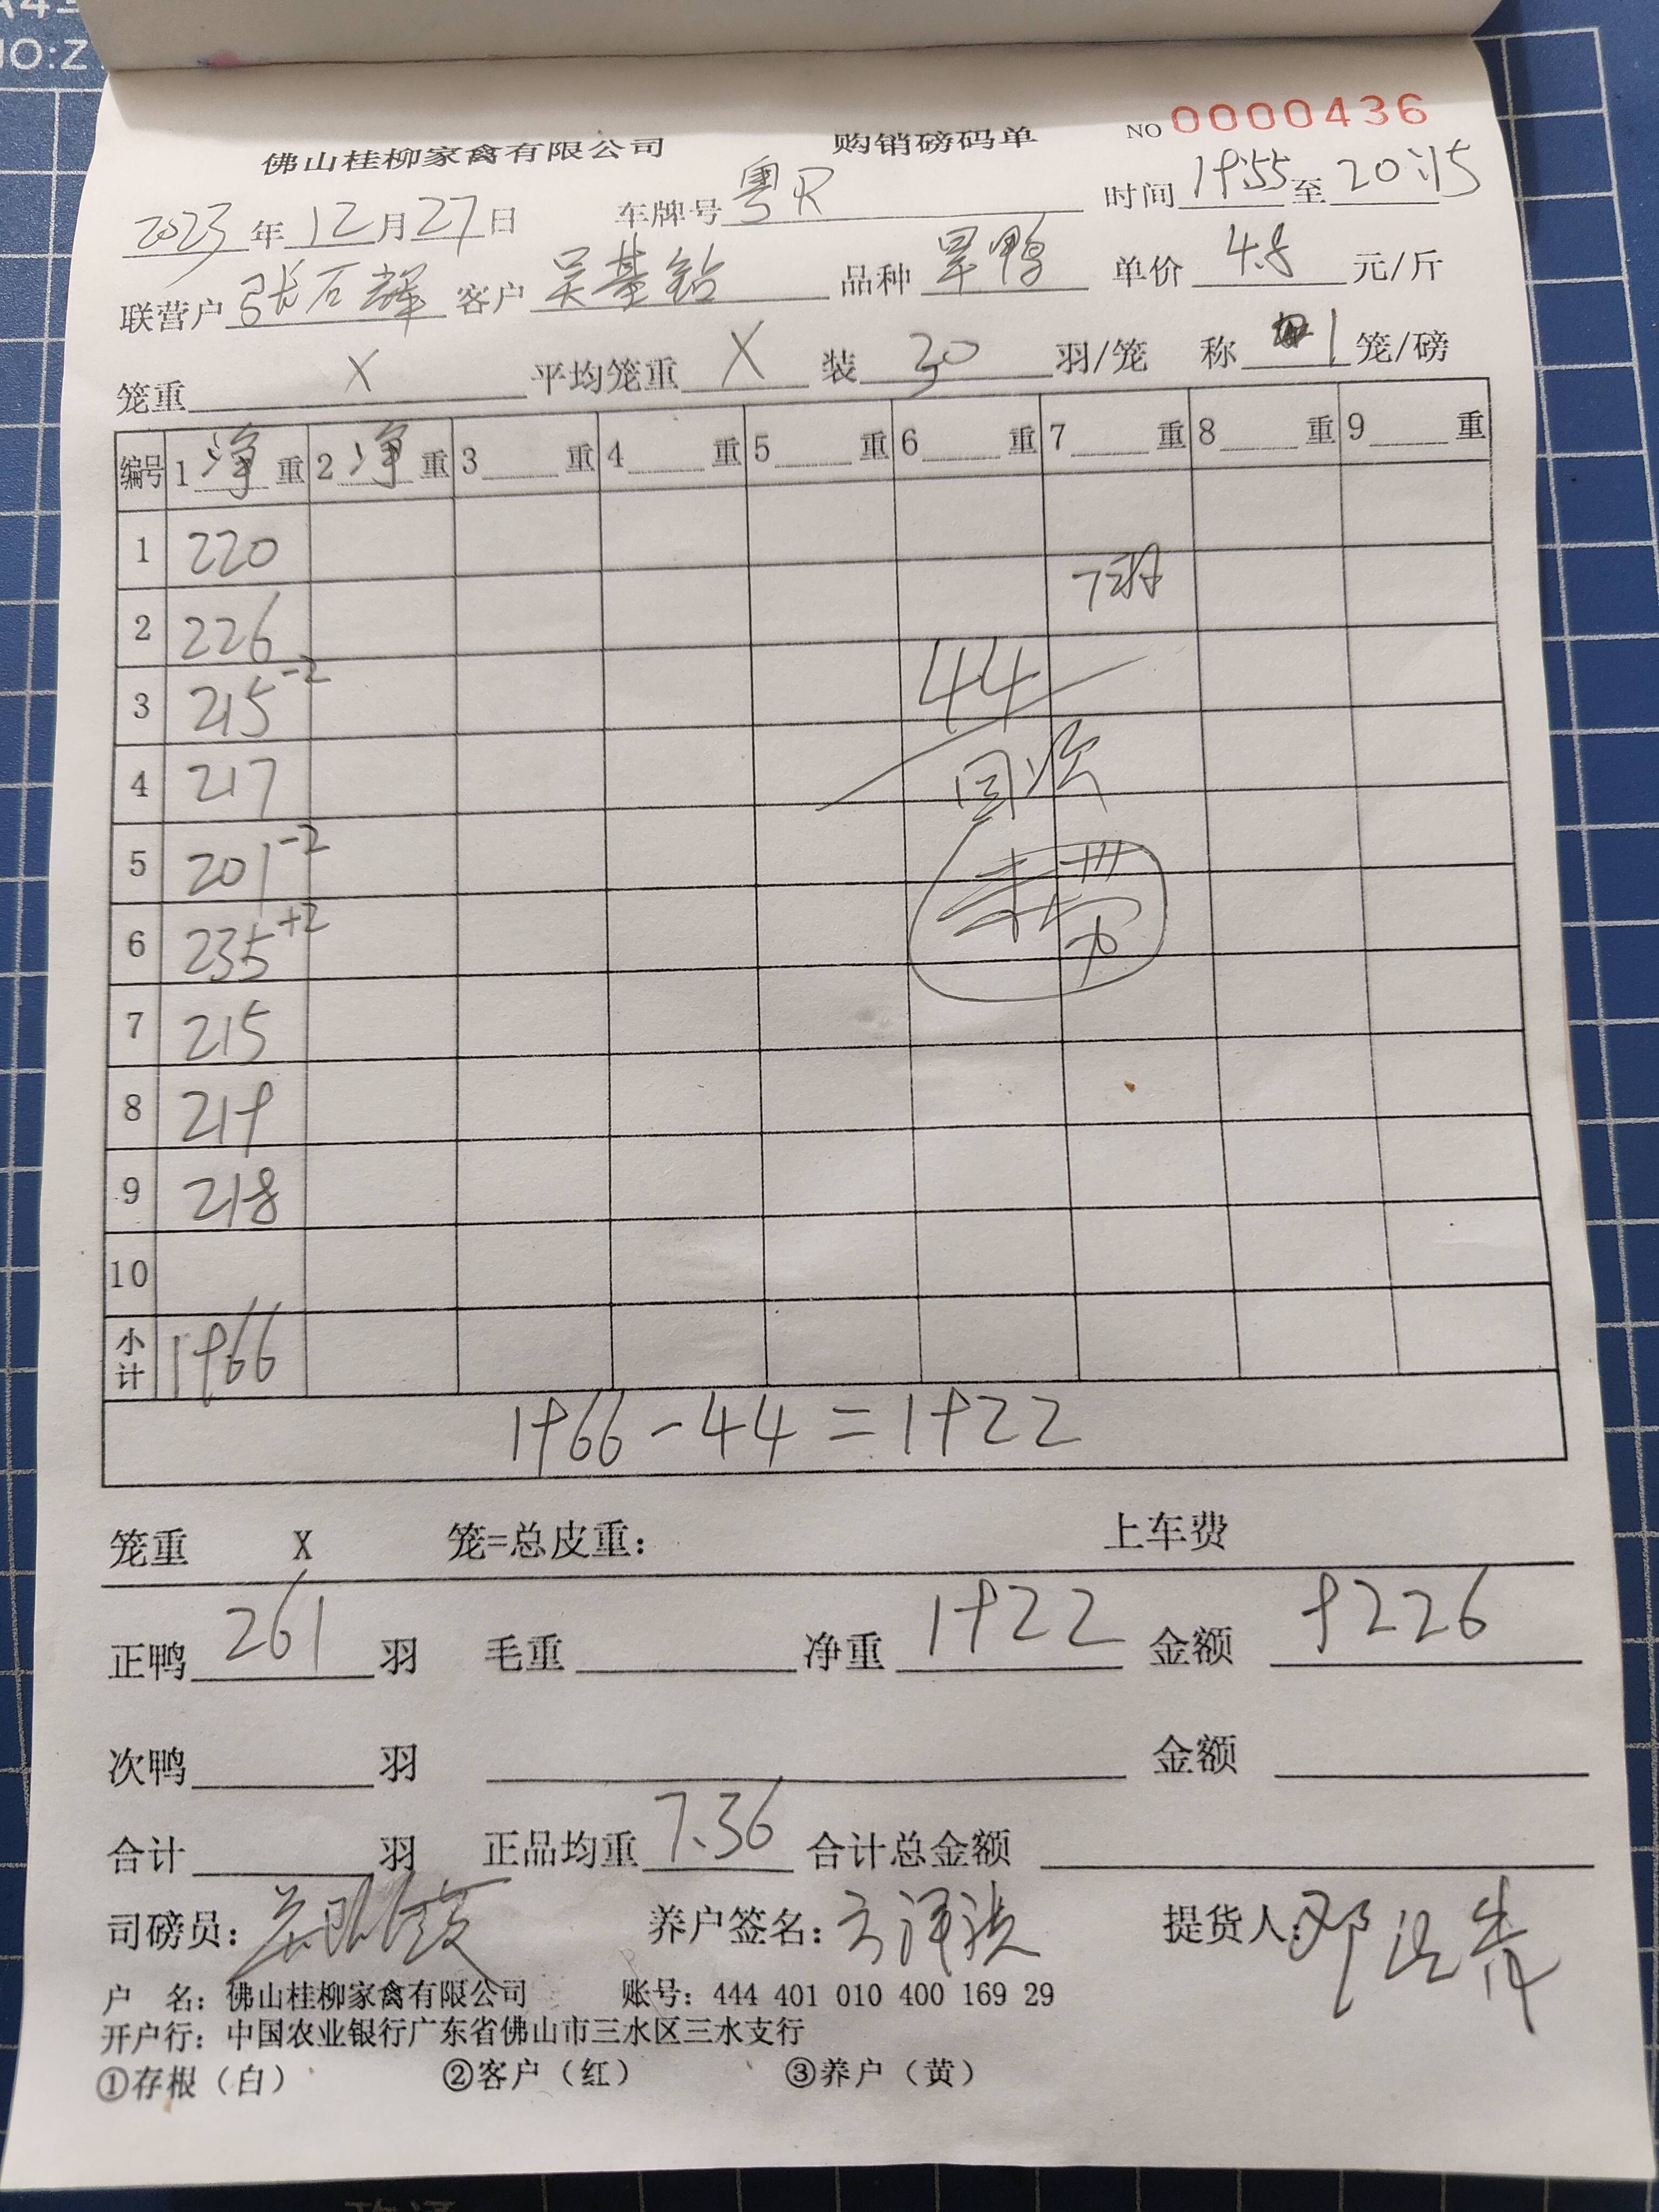 佛山桂柳家禽有限公司 购销磅码单 NO 0000436
2023年12月27日 车牌号 粤R 时间 19:55 至 20:15
联营户 张石辉 客户 吴基钻 品种 旱鸭 单价 4.8 元/斤
笼重 X 平均笼重 X 装 30 羽/笼 称 1 笼/磅
编号 1 净 重 2 净 重 3 重 4 重 5 重 6 重 7 重 8 重 9 重
1 220
2 226
3 215 -2
44
4 217
5 201 -2
6 235 +2
7 215
8 219
9 218
10
小计 1966
1966-44=1922
笼重 X 笼=总皮重： 上车费
正鸭 261 羽 毛重 净重 1922 金额 9226
次鸭 羽 金额
合计 羽 正品均重 7.36 合计总金额
司磅员： 养户签名： 提货人：
户 名：佛山桂柳家禽有限公司 账号：444 401 010 400 169 29
开户行：中国农业银行广东省佛山市三水区三水支行
①存根（白） ②客户（红） ③养户（黄）